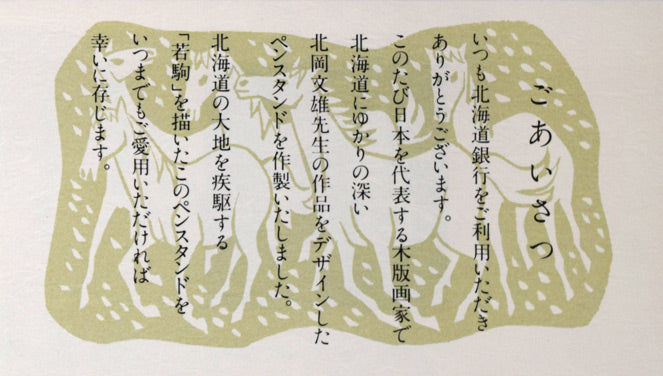 ごあいさつ
いつも北海道銀行をご利用いただき
ありがとうございます。
このたび日本を代表する木版画家で
北海道にゆかりの深い
北岡文雄先生の作品をデザインした
ペンスタンドを作製いたしました。
北海道の大地を疾駆する
「若駒」を描いたこのペンスタンドを
いつまでもご愛用いただければ
幸いに存じます。